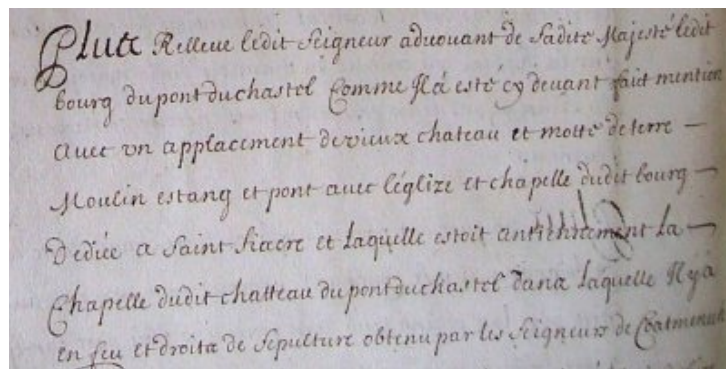 Plus Relleve ledit seigneur advouant de sadite Majesté ledit
bourg du pont du chastel Comme Il a esté cy devant fait mention
avec un applacement de vieux chateau et motte de terre —
Moulin estang et pont avec l'églize et chapelle dudit bourg —
Dediée a saint fiacre et laquelle estoit antiennement la —
Chapelle dudit chatteau du pont du chastel dans laquelle Il y a
en feu et droits de sepulture obtenu par les seigneurs de Coatmenech